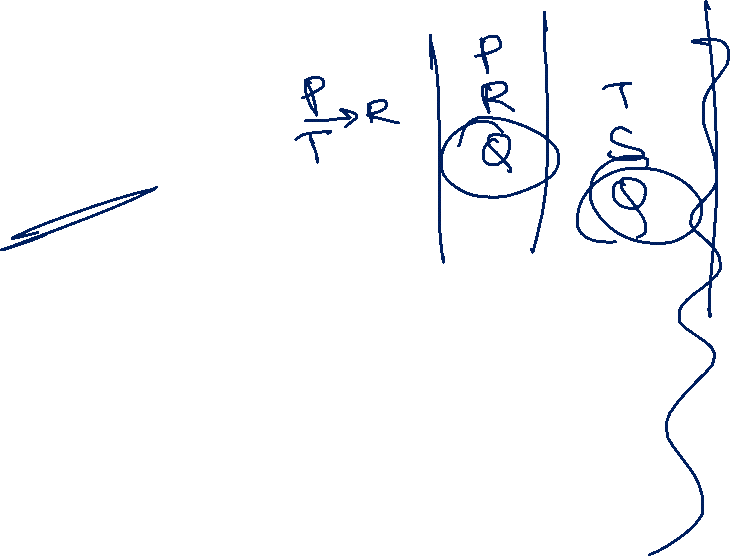 P
T → R
P
R
Q
T
S
Q